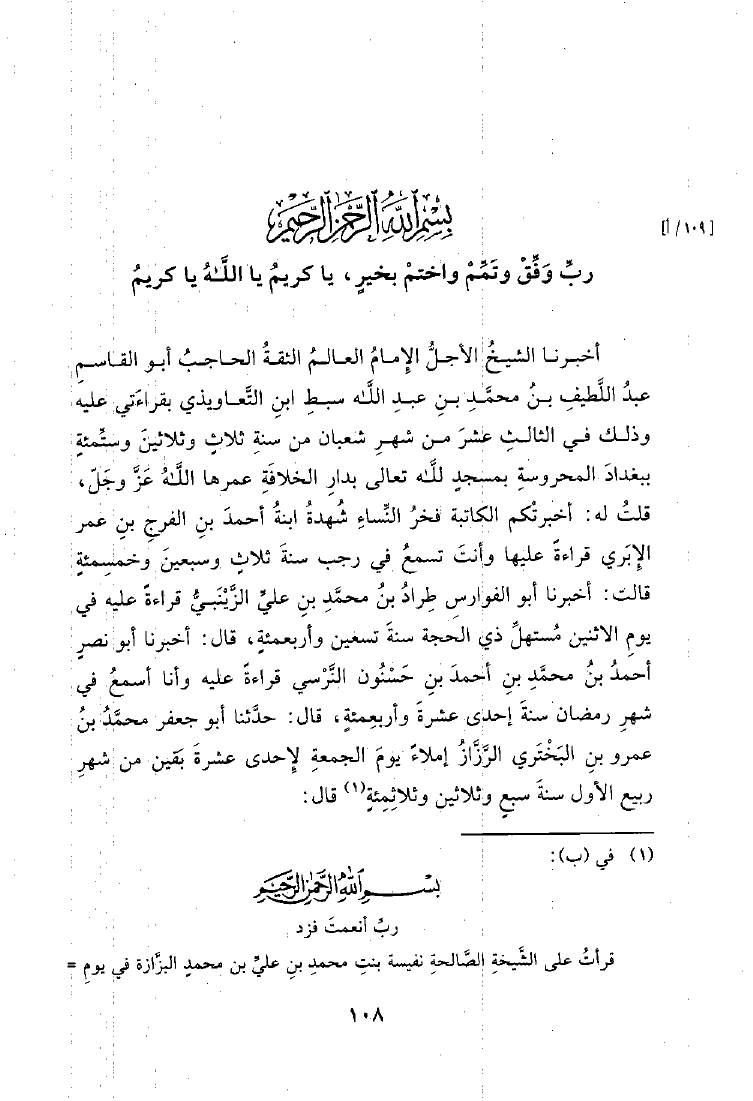 بِسْمِ اللَّهِ الرَّحْمَنِ الرَّحِيمِ
[١٠٩/أ]
ربِّ وَفِّقْ وتَمِّمْ واختمْ بخيرٍ، يا كريمُ يا اللَّهُ يا كريمُ
أخبرنا الشيخُ الأجلُّ الإمامُ العالمُ الثقةُ الحاجبُ أبو القاسمِ
عبدُ اللَّطيفِ بنُ محمَّدِ بنِ عبدِ اللَّه سبط ابنِ التَّعاويذي بقراءَتي عليه
وذلك في الثالثِ عشرَ من شهرِ شعبان من سنةِ ثلاثٍ وثلاثينَ وستِّمئةٍ
ببغدادَ المحروسةِ بمسجدٍ للَّه تعالى بدارِ الخلافةِ عمرها اللَّهُ عَزَّ وجَلّ،
قلتُ له: أخبرتْكم الكاتبة فخرُ النِّساءِ شُهدةُ ابنةُ أحمدَ بنِ الفرجِ بنِ عمر
الإبَري قراءةً عليها وأنتَ تسمعُ في رجب سنةَ ثلاثٍ وسبعينَ وخمسِمئةٍ
قالت: أخبرنا أبو الفوارسِ طِرادُ بنُ محمَّدِ بنِ عليٍّ الزَّيْنَبيُّ قراءةً عليه في
يومِ الاثنين مُستهلِّ ذي الحجة سنةَ تسعين وأربعمئةٍ، قال: أخبرنا أبو نصرٍ
أحمدُ بنُ محمَّدِ بنِ أحمدَ بنِ حَسْنُون النَّرْسي قراءةً عليه وأنا أسمعُ في
شهرِ رمضان سنةَ إحدى عشرةَ وأربعِمئةٍ، قال: حدَّثنا أبو جعفر محمَّدُ بنُ
عمرو بنِ البَخْتَري الرَّزَّازُ إملاءً يومَ الجمعةِ لإحدى عشرةَ بَقين من شهرِ
ربيع الأول سنةَ سبعٍ وثلاثين وثلاثِمِئةٍ(١) قال:
(١) في (ب):
بسم الله الرحمن الرحيم
ربِّ أنعمتَ فزد
قرأتُ على الشَّيخةِ الصَّالحةِ نفيسة بنتِ محمدِ بنِ عليِّ بن محمدٍ البزَّازة في يومِ =
١٠٨